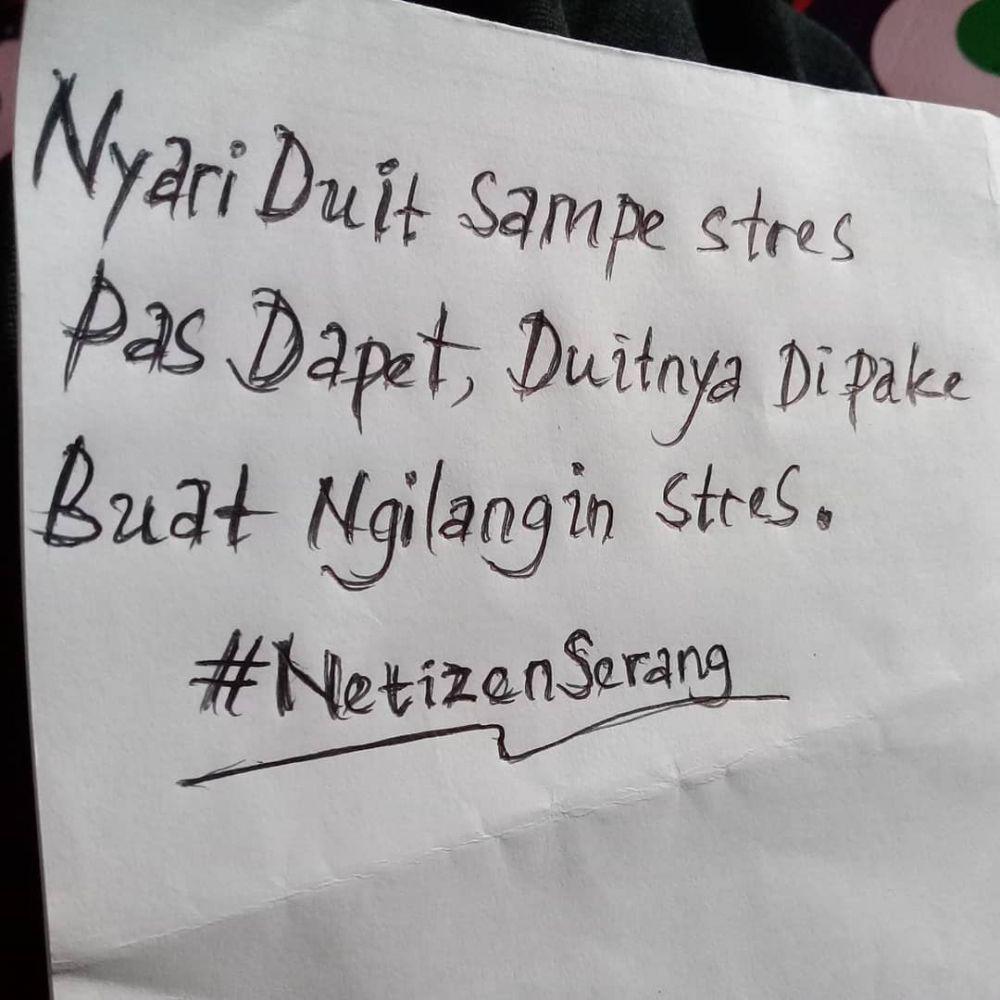 Nyari Duit Sampe stres
Pas Dapet, Duitnya Dipake
Buat Ngilangin stres.
#NetizenSerang